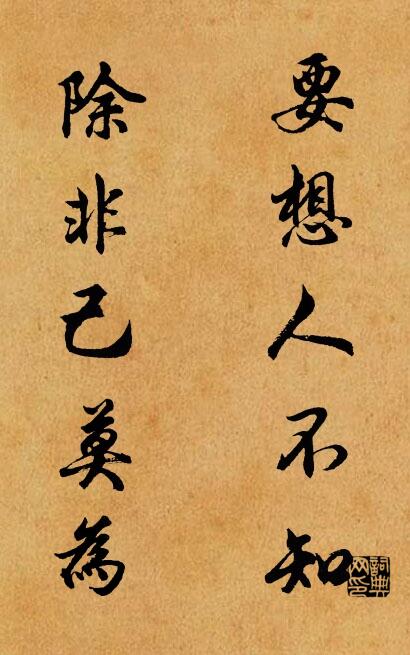 要想人不知
除非己莫為
詞典
网印